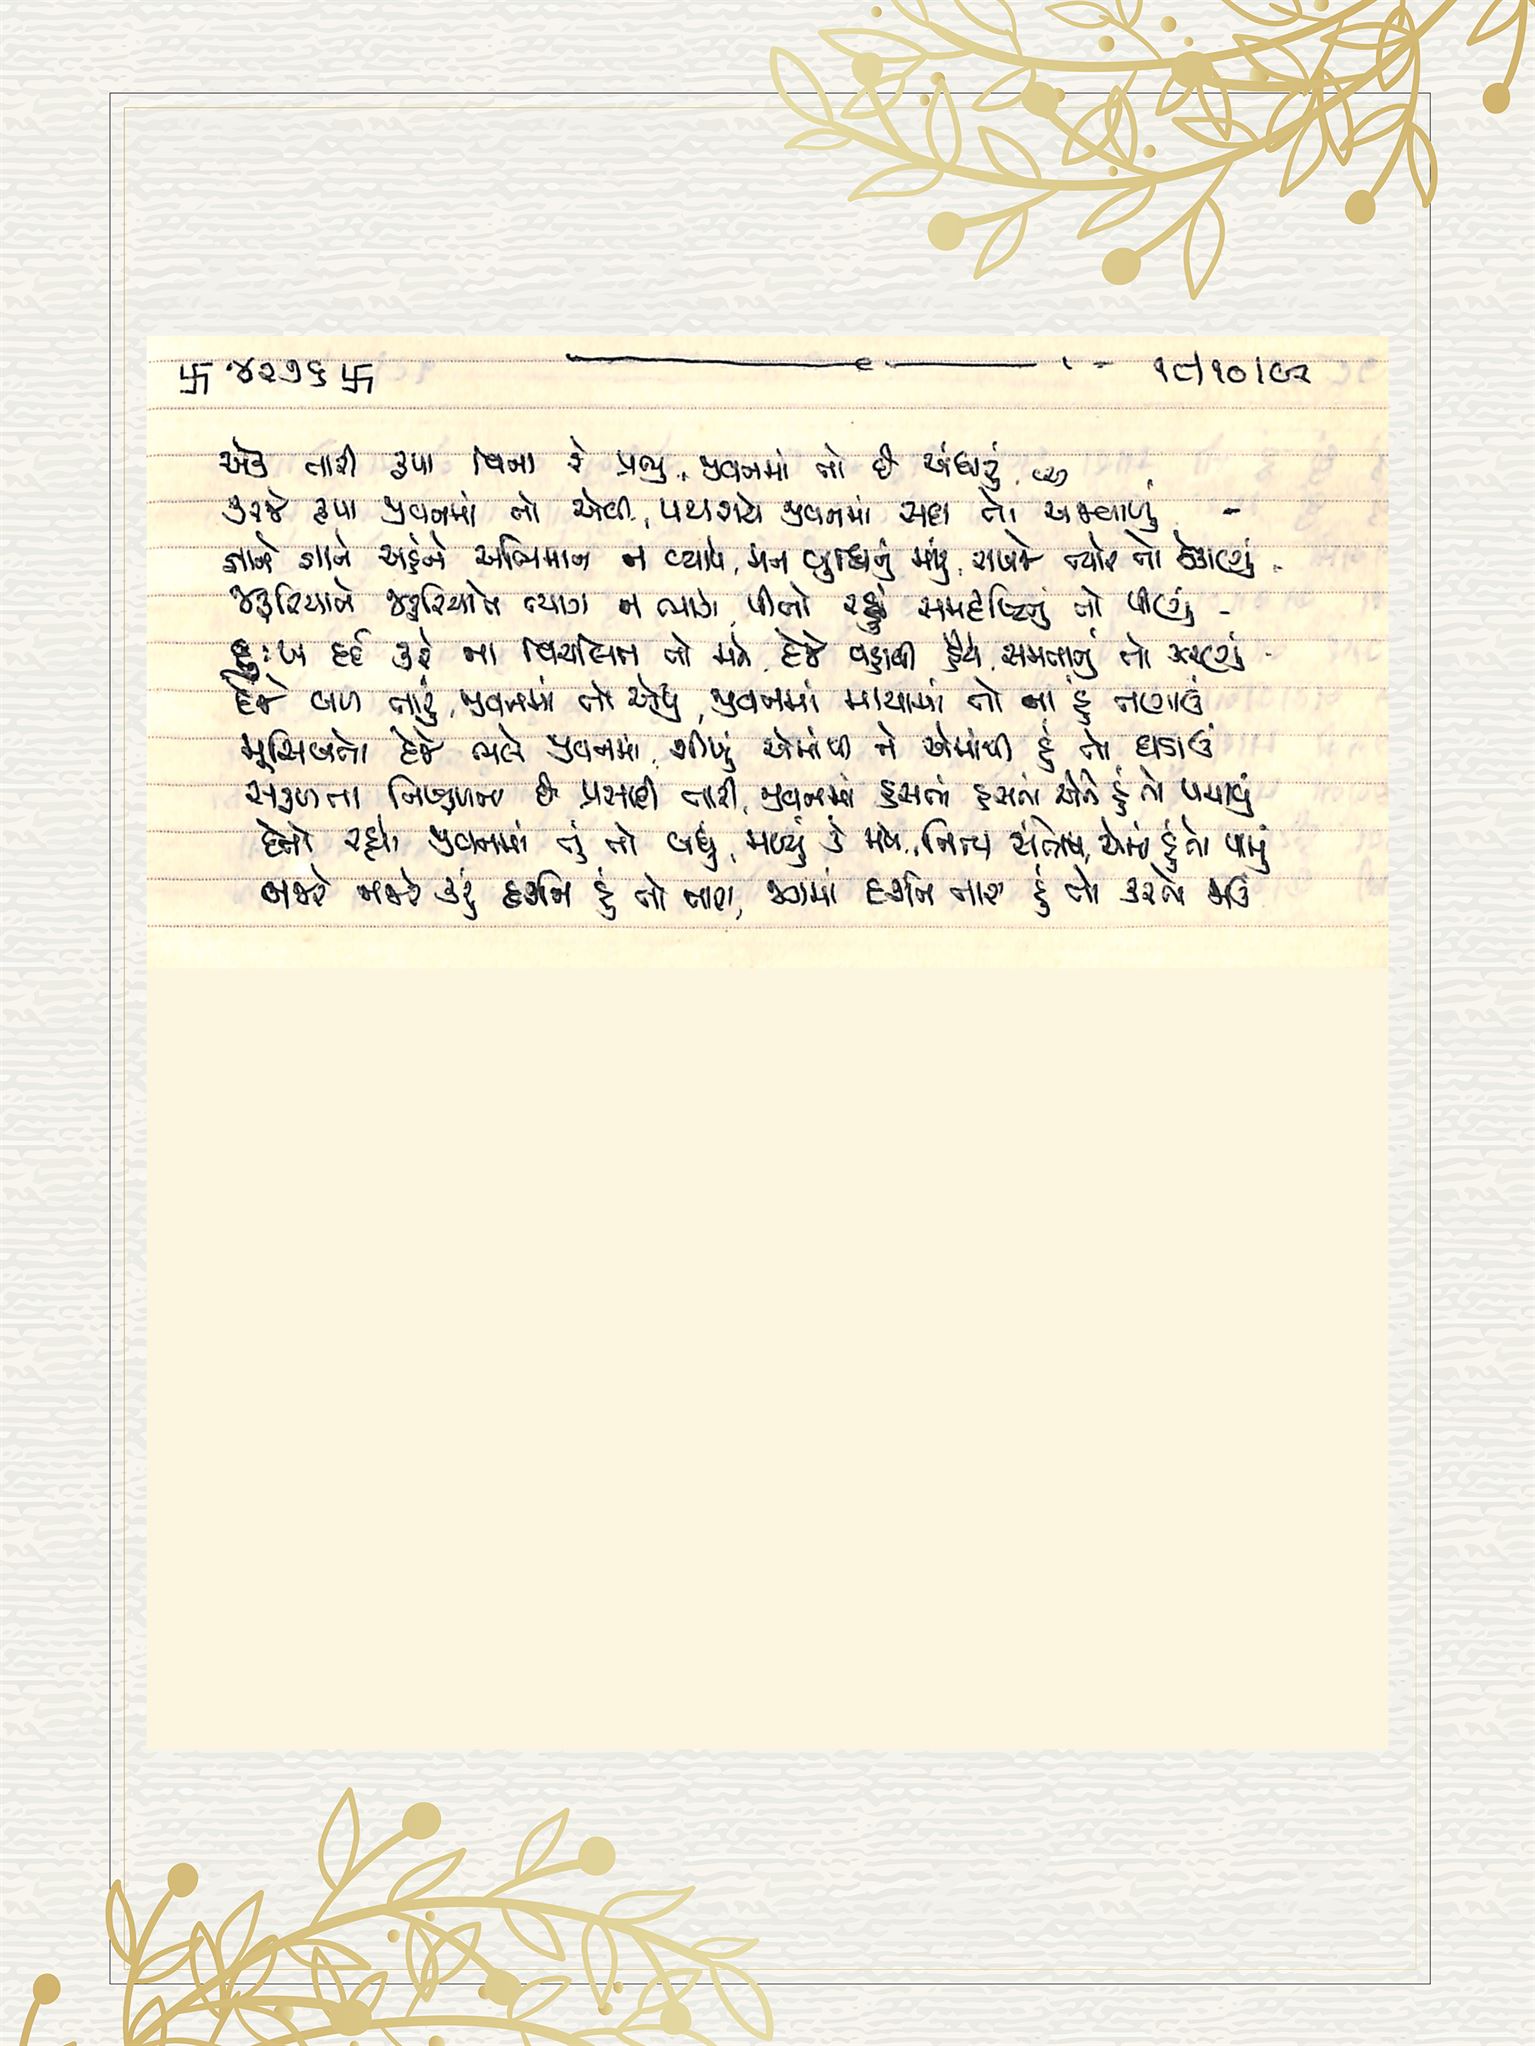 卐 ૪૨૭૬ 卐 ૧૮/૧૦/૯૨
એક તારી કૃપા વિના રે પ્રભુ, જીવનમાં તો છે અંધારું
કરજે કૃપા જીવનમાં તો એવી, પથરાયે જીવનમાં સદા તો અજવાળું
જાગે જાગે અહંને અભિમાન ન વ્યાપે, મન બુદ્ધિનું મારું, રાખજે ત્યારે તો ઠેકાણું
જરૂરિયાતે જરૂરિયાતે ત્યાગ ન ત્યાગું, પીતો રહું સમદૃષ્ટિનું તો પીણું
દુઃખ દર્દ કરે ના વિચલિત તો મને, દેજે વહાવી હૈયે, સમતાનું તો ઝરણું
દેજે બળ તારું, જીવનમાં તો એવું, જીવનમાં માયામાં તો ના હું તણાઉં
મુસિબતો દેજે ભલે જીવનમાં, શીખું એમાંથી ને એમાંથી હું તો ઘડાઉં
સફળતા નિષ્ફળતા છે પ્રસાદી તારી, જીવનમાં હસતાં હસતાં એને હું તો પચાવું
દેતો રહ્યો જીવનમાં તું તો બધું, મળ્યું કે મળે, નિત્ય સંતોષ, એમાં હું તો પામું
નજરે નજરે કરું દર્શન હું તો તારા, જગમાં દર્શન તારા હું તો કરતો જાઉં